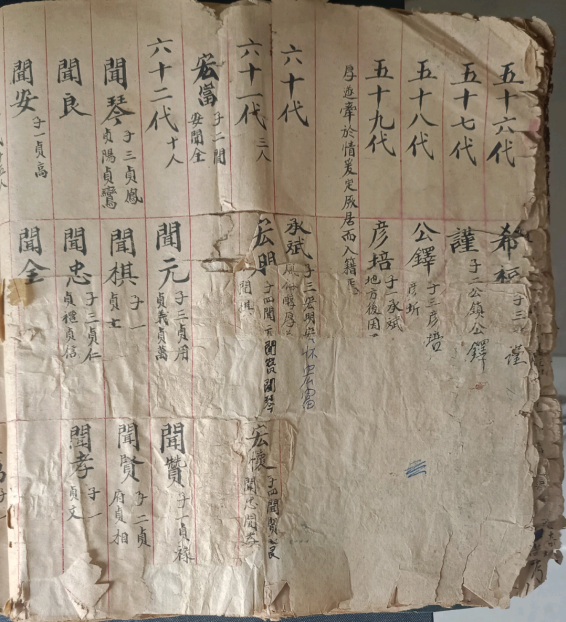 五十六代
希福 子三 謹
五十七代
謹 子二公鎮公鐸
五十八代
公鐸 子三彥培
彥圻
五十九代
彥培 子一承斌
地方後因
厚遊牽於情爰定厥居而入籍焉
六十代
承斌 子三宏明宏怀宏富
六十一代 三人
宏明 子四聞元聞贊聞琴
聞棋
宏懷 子四聞賢聞良
聞忠聞孝
宏富 子二聞
安聞全
六十二代 十人
聞元 子三貞淯
貞義貞萬
聞贊 子一貞祿
聞琴 子三貞鳳
貞陽貞鸞
聞棋 子一
貞士
聞賢 子二貞
府貞相
聞良
聞忠 子三貞仁
貞禮貞信
聞孝 子一
貞文
聞安 子一貞高
聞全